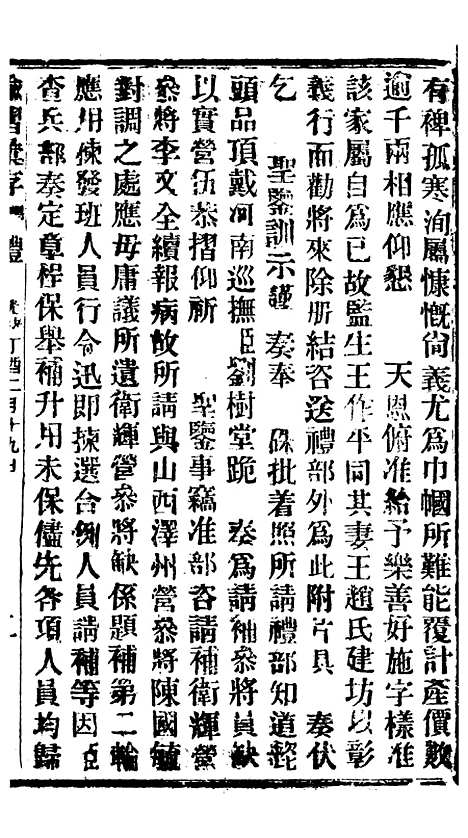 有裨孤寒洵屬慷慨尙義尤爲巾幗所難能覆計產價數
逾千兩相應仰懇　天恩俯准給予樂善好施字樣准
該家屬自爲已故監生王作平同其妻王趙氏建坊以彰
義行而勸將來除册結咨送禮部外爲此附片具　奏伏
乞　聖鑒訓示謹　奏奉　硃批着照所請禮部知道欽此
頭品頂戴河南巡撫臣劉樹堂跪　奏爲請補參將員缺
以實營伍恭摺仰祈　聖鑒事竊准部咨請補衛輝營
參將李文全續報病故所請與山西澤州營參將陳國毓
對調之處應毋庸議所遺衛輝營參將缺係題補第二輪
應用揀發班人員行令迅即揀選合例人員請補等因臣
查兵部奏定章程保舉補升用未保儘先各項人員均歸
諭摺彙存　禮　丁酉二月十九日